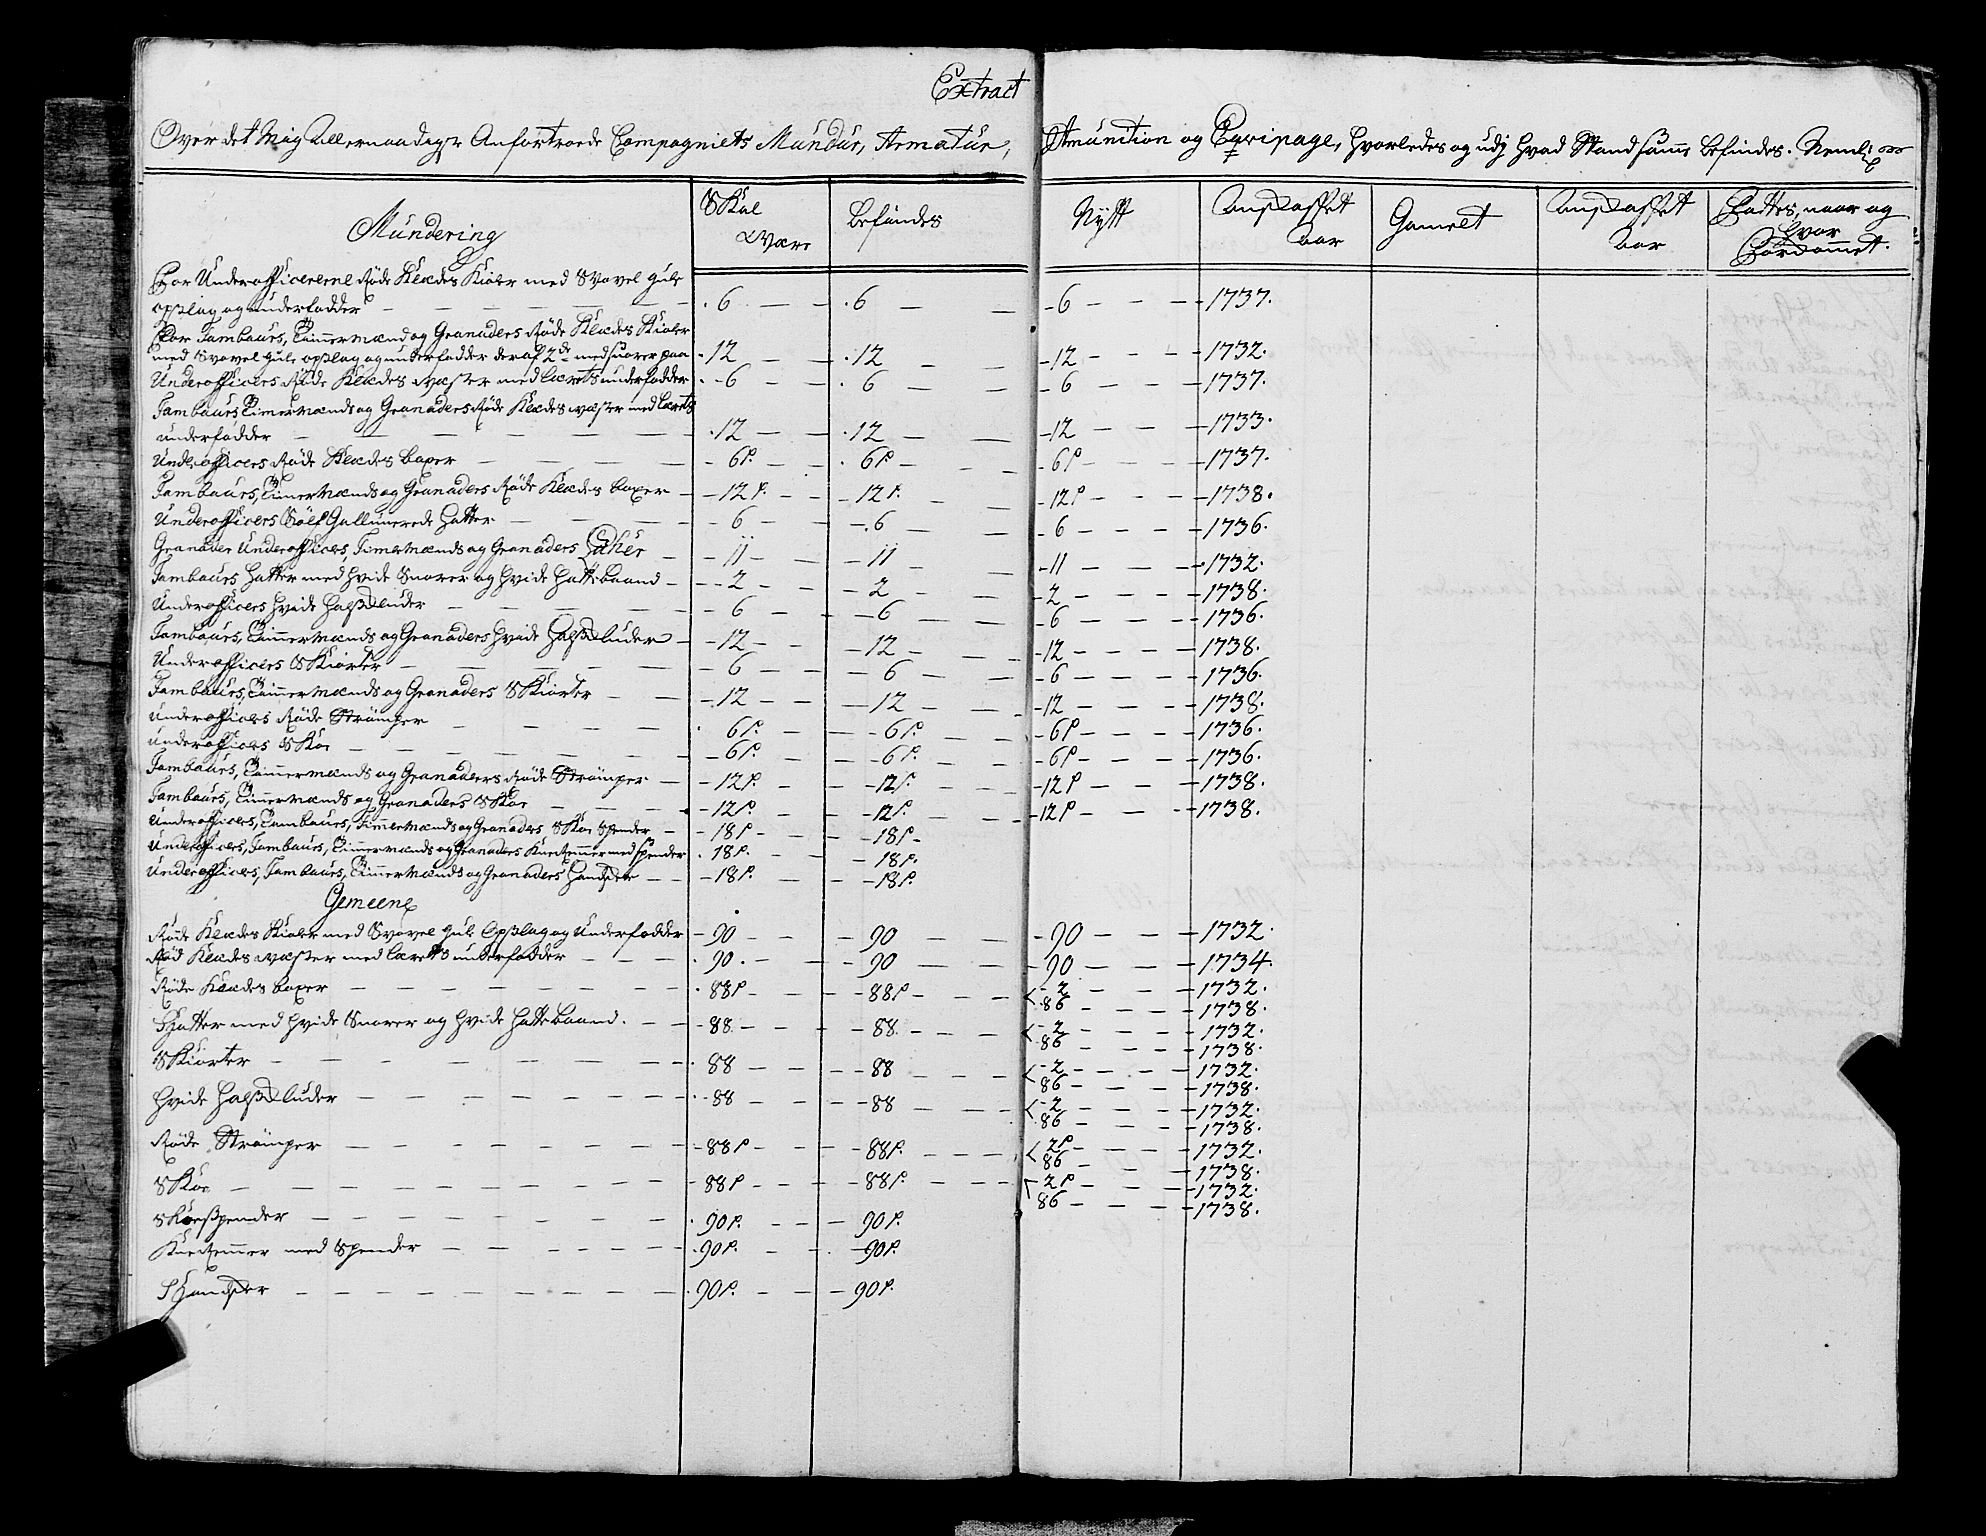 Extract
Over det Mig Allernaadigst Anfortroede Compagniets Mundur, Armatur, Amunition og Equipage, hvorledes og udj hvad Stand samme befindes. Nemlig
Mundering | Skal Være | befindes | Nytt | Anskaffet Aar | Gamelt | Anskaffet Aar | Fattes, naar og hvor
For Underofficererne Røde Klædes Kioler med Svovel gule
opslag og underfodder — 6 — 6 — 6 — 1737.
For Tambours, Timmermænd og Granaders Røde Klædes Kioler
med Svovel gule opslag og underfodder deraf 2de med snorer paa 12 — 12 — 12 — 1732.
Underofficers Røde Klædes væster med lærets underfodder 6 — 6 — 6 — 1737.
Tambours Timermænds og Granaders Røde Klædes væster med lærets
underfodder — 12 — 12 — 12 — 1733.
Underofficers Røde Klædes boxer — 6 P. — 6 P — 6 P — 1737.
Tambours, Timermænds og Granaders Røde Klædes boxer — 12 P. — 12 P. — 12 P — 1738.
Underofficers Sølf Gallunerede Hatter — 6 — 6 — 6 — 1736.
Granader Underofficers, Timermænds og Granaders — 11 — 11 — 11 — 1732.
Tambours Hatter med hvide Snorer og hvide Hattebaand — 2 — 2 — 2 — 1738.
Underofficers hvide Halskluder — 6 — 6 — 6 — 1736.
Tambours, Timmermænds og Granaders hvide Halskluder — 12 — 12 — 12 — 1738.
Underofficers Skiorter — 6 — 6 — 6 — 1736.
Tambours, Timmermænds og Granaders Skiorter — 12 — 12 — 12 — 1738.
Underofficers Røde Strømper — 6 P. — 6 P. — 6 P — 1736.
Underofficers Skoe — 6 P. — 6 P. — 6 P — 1736.
Tambours, Timmermænds og Granaders Røde Strømper — 12 P. — 12 P. — 12 P — 1738.
Tambours, Timmermænds og Granaders Skoe — 12 P. — 12 P. — 12 P — 1738.
Underofficers, Tambours, Timmermænds og Granaders Skoe Spender — 18 P — 18 P
Underofficers, Tambours, Timmermænds og Granaders Knæremmer med Spender 18 P. — 18 P.
Underofficers, Tambours, Timmermænds og Granaders Handsker — 18 P. — 18 P.
Gemeene
Røde Klædes Kioler med Svovel gule Opslag og Underfodder — 90 — 90 — 90 — 1732.
Rød Klædes væster med lærets underfodder — 90 — 90 — 90 — 1734.
Røde Klædes boxer — 88 P — 88 P — 2 — 1732.
86 — 1738.
Hatter med hvide Snorer og hvide Hattebaand. — 88 — 88 — 2 — 1732.
86 — 1738.
Skiorter — 88 — 88 — 2 — 1732.
86 — 1738.
Hvide Halskluder — 88 — 88 — 2 — 1732.
86 — 1738.
Røde Strømper — 88 P — 88 P. — 2 P — 1732.
86 — 1738.
Skoe — 88 P — 88 P. — 2 P — 1732.
86 — 1738.
Skoespender — 90 P. — 90 P.
Knæremmer med Spender — 90 P. — 90 P.
Handsker — 90 P. — 90 P.